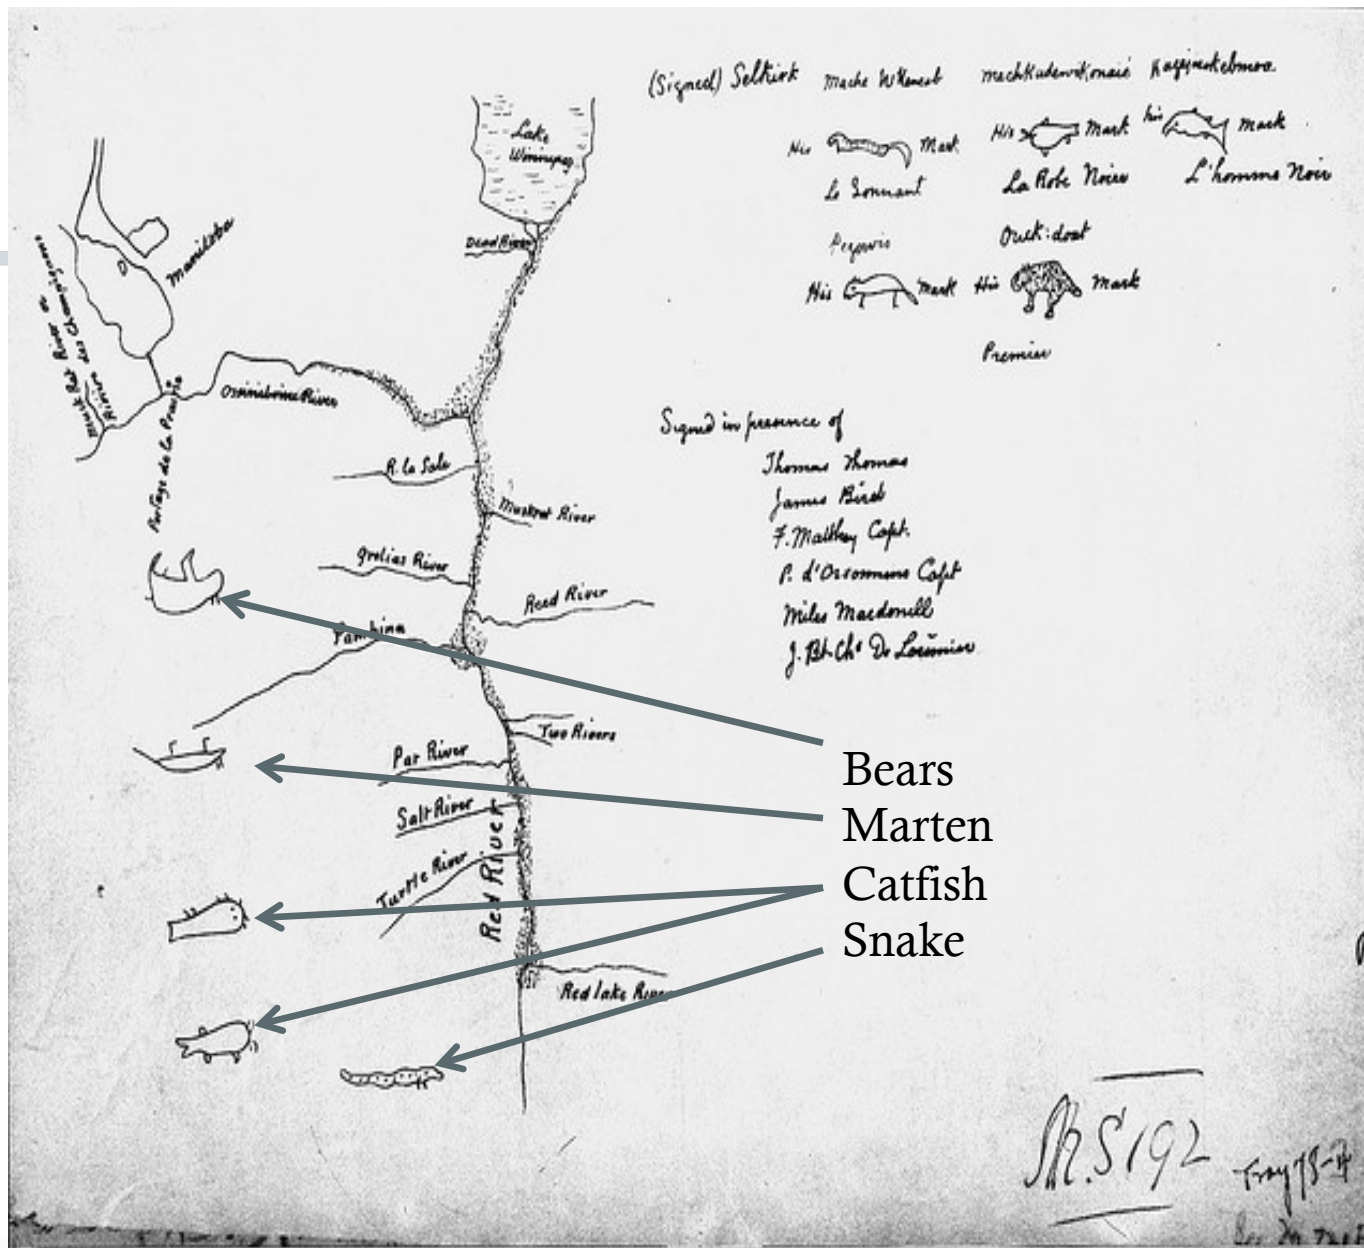 (Signed) Selkirk Mache Wheseab Mechkaddewikonaie
His Mark His Mark his Mark
Le Sonnant La Robe Noire L'homme Noir
Pegowis Ouck:doat
His Mark His Mark
Premier
Signed in presence of
Thomas Thomas
James Bird
F. Matthey Capt.
P. d'Orsonnens Capt
Miles Macdonell
J. Bt. Chs De Lorimier
Lake
Winnipeg
Dead River
Manitoba
Musk Rat River or
Rivière des Champignons
Portage de la Prairie
Ossiniboine River
R. la Sale
Muskrat River
Reed River
Pambina
Two Rivers
Par River
Salt River
Turtle River
Red River
Red lake River
Bears
Marten
Catfish
Snake
M.S192